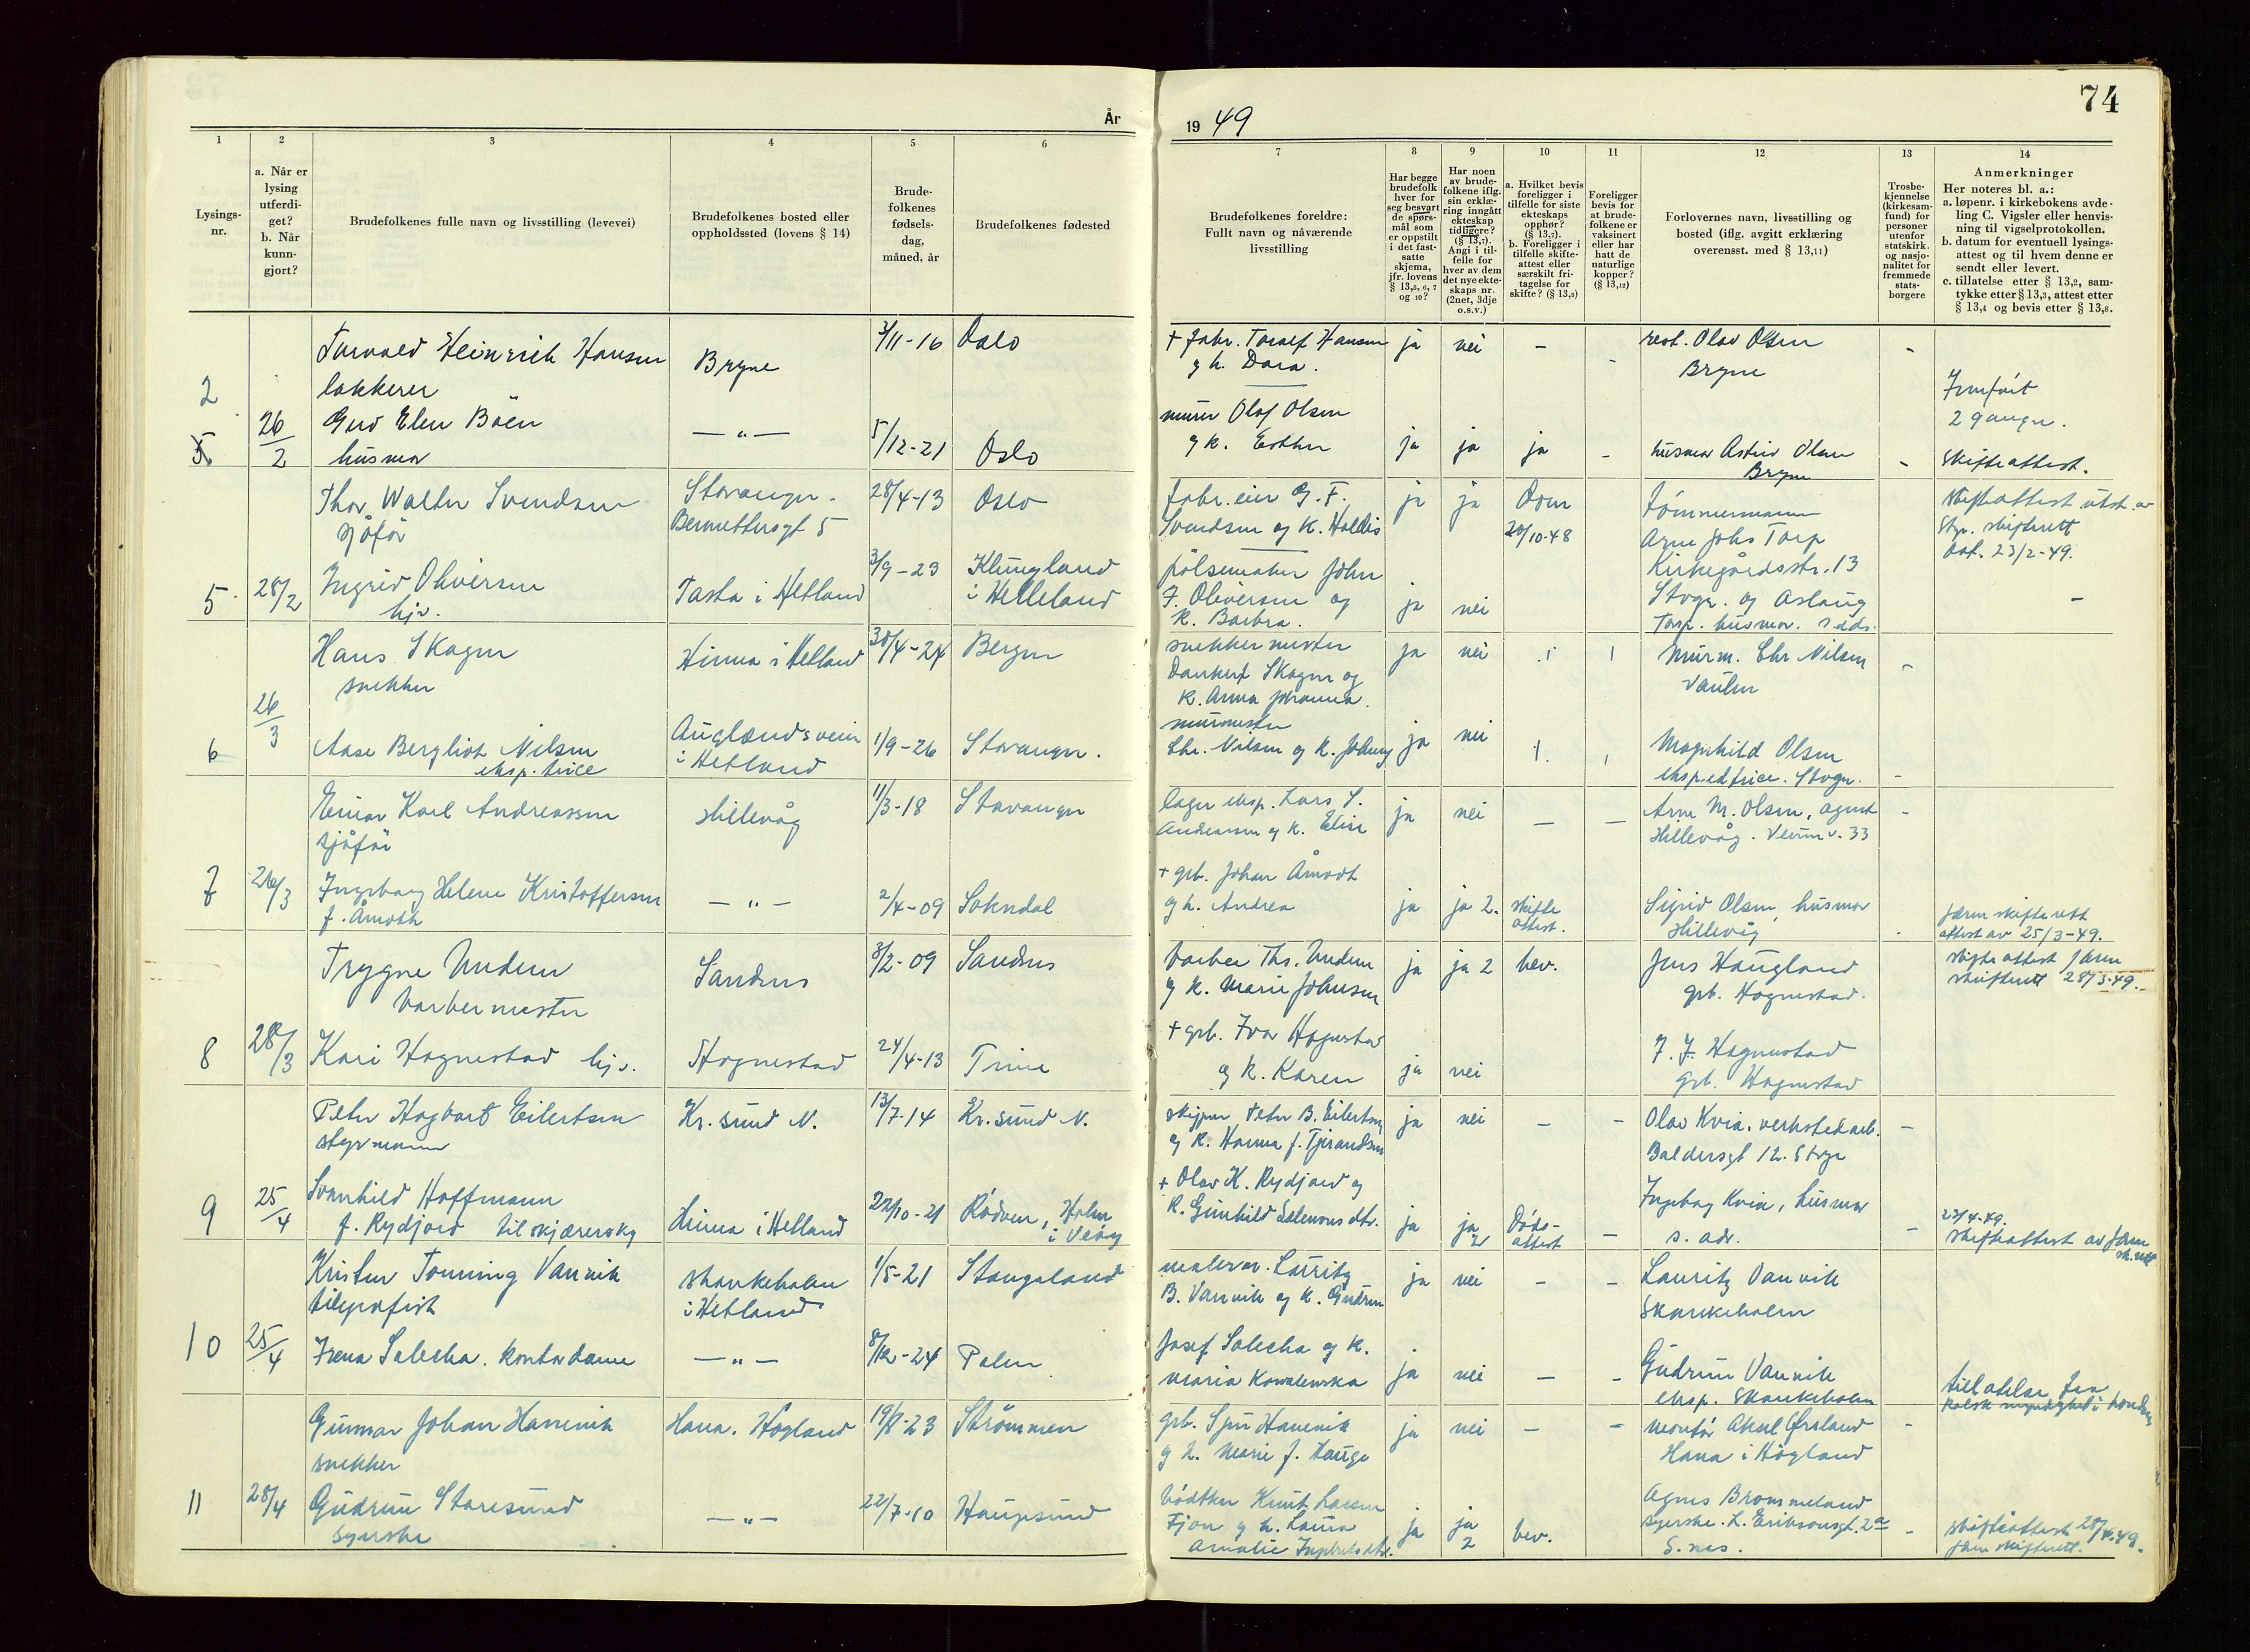 74
År
19 49
1
2
3
4
5
6
7
8
9
10
11
12
13
14
Lysings-
nr.
a. Når er
lysing
utferdi-
get?
b. Når
kunn-
gjort?
Brudefolkenes fulle navn og livsstilling (levevei)
Brudefolkenes bosted eller
oppholdssted (lovens § 14)
Brude-
folkenes
fødsels-
dag,
måned, år
Brudefolkenes fødested
Brudefolkenes foreldre:
Fullt navn og nåværende
livsstilling
Har begge
brudefolk
hver for
seg besvart
de spørs-
mål som
er oppstilt
i det fast-
satte
skjema,
jfr. lovens
§ 13,5, 6, 7
og 10?
Har noen
av brude-
folkene iflg.
sin erklæ-
ring inngått
ekteskap
tidligere?
(§ 13,7).
Angi i til-
felle for
hver av dem
det nye ekte-
skaps nr.
(2net, 3dje
o.s.v.)
a. Hvilket bevis
foreligger i
tilfelle for siste
ekteskaps
opphør?
(§ 13,7).
b. Foreligger i
tilfelle skifte-
attest eller
særskilt fri-
tagelse for
skifte? (§ 13,9)
Foreligger
bevis for
at brude-
folkene er
vaksinert
eller har
hatt de
naturlige
kopper?
(§ 13,12)
Forlovernes navn, livsstilling og
bosted (iflg. avgitt erklæring
overensst. med § 13,11)
Trosbe-
kjennelse
(kirkesam-
fund) for
personer
utenfor
statskirk.
og nasjo-
nalitet for
fremmede
stats-
borgere
Anmerkninger
Her noteres bl. a.:
a. løpenr. i kirkebokens avde-
ling C. Vigsler eller henvis-
ning til vigselprotokollen.
b. datum for eventuell lysings-
attest og til hvem denne er
sendt eller levert.
c. tillatelse etter § 13,2, sam-
tykke etter § 13,3, attest etter
§ 13,4 og bevis etter § 13,8.
2
Torvald Heinrich Hansen Bryne 3/11-16 Oslo
lakkerer
26/2 Gerd Elen Böen —"— 5/12-21 Oslo
husmor
+ fabr. Toralf Hansen ja nei — - Olav Olsen -
og h. Dora. Bryne
murer Olaf Olsen
og k. Esther ja ja ja - husmor Astrid Olsen - Skifteattest.
Bryne
2 ganger.
Thor Walter Svendsen Stavanger. 28/4-13 Oslo
sjåfør 5
5 28/2 Ingrid Oliversen Tasta i Hetland 3/9-23 Klungland
hjv. i Helleland
fabr. eier G. F. ja ja Dom Tömmermann skifteattest utst. av
Svendsen og k. Holldis 20/10-48 Arne Johs Torp Stgr. skifterett
pølsemaker John Kirkegårdsstr. 13 dat. 23/2-49.
F. Oliversen og ja nei Stvgr. og Aslaug -
k. Barbra. Torp. husmor. s. sds.
Hans Skagen Hinna i Hetland 30/4-24 Bergen
snekker
6 26/3 Aase Bergliot Nilsen Auglendsveien 1/9-26 Stavanger.
eksp. trice i Hetland
snekkermester ja nei Murm. Chr Nilsen -
Dankert Skagen og Vaulen
k. Anna Johanna.
murmester
Chr. Nilsen og k. ja nei Magnhild Olsen
ekspeditrice. Stvgr. -
Einar Karl Andreassen Hillevåg 11/3-18 Stavanger
sjåfør
7 26/3 Ingeborg Helene Kristoffersen —"— 2/4-09 Sokndal
f. Åmodt
lager eksp. Lars S. ja nei — — Arne M. Olsen, agent -
Andreassen og k. Elise Hillevåg. 33
+ grb. Johan Åmodt
og h. Andrea ja ja 2. skifte Sigrid Olsen, husmor Jæren skifterett
attest. Hillevåg attest av 25/3-49.
Trygve Undem Sandnes 8/2-09 Sandnes
barbermester
8 28/3 Kari Hognestad hjv. Hognestad 24/4-13 Time
barber Ths. Undem ja ja 2 bev. Jens Haugland skifteattest Jæren
og k. Marie Johnsen grb. Hognestad. skifterett 28/3-49.
+ grb. Ivar Hognestad
og k. Karen ja nei Hognestad
grb. Hognestad
Peter Hagbart Eilertsen Kr. sund N. 13/7-14 Kr. sund N.
styrmann
9 25/4 Svanhild Hoffmann Hinna i Hetland 22/10-21 Rödven, Holm
f. Rydjord tilskjærerske i Veöy
skipper Peter B. Eilertsen ja nei — - Olav Kvia, verkstedarb. —
og k. Hanna f. Baldersgt 12. Stvgr
+ Olav K. Rydjord og
k. Gunhild Salomonsdtr. ja ja 2 Döds-attest - Ingeborg Kvia, husmor - 23/4-49.
s. adr. skifteattest av Jæren sk.rett
Kristen Tonning Vannvik Skankeholen 1/5-21 Stangaland
telegrafist i Hetland
10 25/4 Irena Salecha. kontordame —"— 8/12-24 Polen
Lauritz ja nei — - Lauritz Vannvik
B. Vannvik og k. Gudrun Skankeholen
Josef Salecha og k.
Maria Kowalewska ja nei — - Gudrun Vannvik tillatelse fra
eksp. Skankeholen Polsk myndighet i London
Gunnar Johan Hanevik Hana. Högland 19/8-23 Strömmen
snekker
11 28/4 Gudrun Storesund —"— 22/7-10 Haugesund
syerske
grb. Hanevik ja nei — - montør Øksland -
og k. Marie f. Hauge Hana i Högland
bödtker Knut Larsen Agnes Brommeland
Fjon og h. Laura ja ja 2 bev. syerske. L. Eriksonsgt. 2a - skifteattest 28/4.49.
Amalie Ingebretsdtr. S.nes. Jæren skifterett.